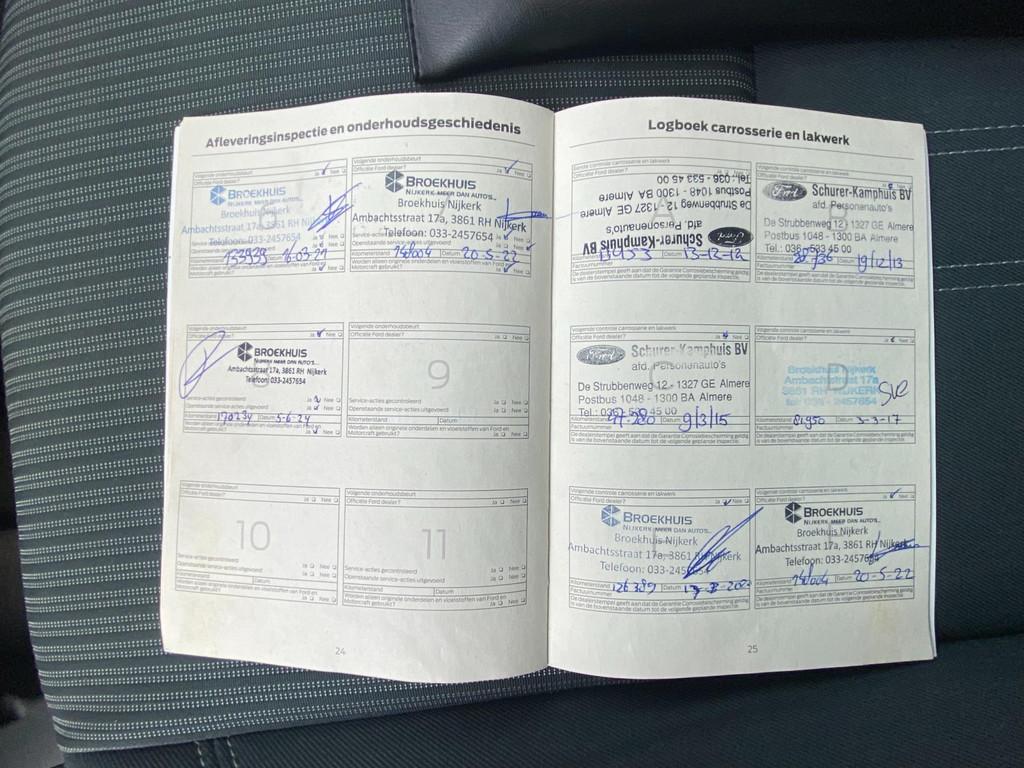 Afleveringsinspectie en onderhoudsgeschiedenis
Volgende onderhoudsbeurt
Officiële Ford dealer? Ja Nee
BROEKHUIS
NIJKERK MEER DAN AUTO'S...
Broekhuis Nijkerk
Ambachtsstraat 17a, 3861 RH Nijkerk
Telefoon: 033-2457654
Kilometerstand Datum
Worden alleen originele onderdelen en vloeistoffen van Ford en
Motorcraft gebruikt? Ja Nee
Volgende onderhoudsbeurt
Officiële Ford dealer? Ja Nee
BROEKHUIS
NIJKERK MEER DAN AUTO'S...
Broekhuis Nijkerk
Ambachtsstraat 17a, 3861 RH Nijkerk
Telefoon: 033-2457654
Openstaande service-acties uitgevoerd Ja Nee
Kilometerstand Datum 20-5-22
Worden alleen originele onderdelen en vloeistoffen van Ford en
Motorcraft gebruikt? Ja Nee
Volgende onderhoudsbeurt
Officiële Ford dealer? Ja Nee
BROEKHUIS
NIJKERK MEER DAN AUTO'S...
Ambachtsstraat 17a, 3861 RH Nijkerk
Telefoon: 033-2457654
Service-acties gecontroleerd Ja Nee
Openstaande service-acties uitgevoerd Ja Nee
Kilometerstand 170234 Datum 5-6-24
Worden alleen originele onderdelen en vloeistoffen van Ford en
Motorcraft gebruikt? Ja Nee
Volgende onderhoudsbeurt
Officiële Ford dealer? Ja Nee
9
Service-acties gecontroleerd Ja Nee
Openstaande service-acties uitgevoerd Ja Nee
Kilometerstand Datum
Worden alleen originele onderdelen en vloeistoffen van Ford en
Motorcraft gebruikt? Ja Nee
Volgende onderhoudsbeurt
Officiële Ford dealer? Ja Nee
10
Service-acties gecontroleerd Ja Nee
Openstaande service-acties uitgevoerd Ja Nee
Kilometerstand Datum
Worden alleen originele onderdelen en vloeistoffen van Ford en
Motorcraft gebruikt? Ja Nee
Volgende onderhoudsbeurt
Officiële Ford dealer? Ja Nee
11
Service-acties gecontroleerd Ja Nee
Openstaande service-acties uitgevoerd Ja Nee
Kilometerstand Datum
Worden alleen originele onderdelen en vloeistoffen van Ford en
Motorcraft gebruikt? Ja Nee
24
Logboek carrosserie en lakwerk
Eerste controle carrosserie en lakwerk
Officiële Ford dealer?
A
Ford Schurer-Kamphuis BV
afd. Personenauto's
De Strubbenweg 12 - 1327 GE Almere
Postbus 1048 - 1300 BA Almere
Tel.: 036 - 533 45 00
Datum 13-12-12
Factuurnummer
De dealerstempel geeft aan dat de Garantie Corrosiebescherming geldig
is van de bovenstaande datum tot de volgende geplande inspectie.
Volgende controle carrosserie en lakwerk
Officiële Ford dealer?
B
Ford Schurer-Kamphuis BV
afd. Personenauto's
De Strubbenweg 12 - 1327 GE Almere
Postbus 1048 - 1300 BA Almere
Tel.: 036 - 533 45 00
Datum 19/12/13
Factuurnummer
De dealerstempel geeft aan dat de Garantie Corrosiebescherming geldig
is van de bovenstaande datum tot de volgende geplande inspectie.
Volgende controle carrosserie en lakwerk
Officiële Ford dealer? Ja Nee
C
Ford Schurer-Kamphuis BV
afd. Personenauto's
De Strubbenweg 12 - 1327 GE Almere
Postbus 1048 - 1300 BA Almere
Tel.: 036 - 533 45 00
Datum 9/3/15
Factuurnummer
De dealerstempel geeft aan dat de Garantie Corrosiebescherming geldig
is van de bovenstaande datum tot de volgende geplande inspectie.
Volgende controle carrosserie en lakwerk
Officiële Ford dealer? Ja Nee
D
Broekhuis Nijkerk
Ambachtstraat 17a
3861 RH NIJKERK
2457654
Kilometerstand 81950 Datum 3-3-17
Factuurnummer
De dealerstempel geeft aan dat de Garantie Corrosiebescherming geldig
is van de bovenstaande datum tot de volgende geplande inspectie.
Volgende controle carrosserie en lakwerk
Officiële Ford dealer? Ja Nee
BROEKHUIS
NIJKERK MEER DAN AUTO'S...
Broekhuis Nijkerk
Ambachtsstraat 17a, 3861 RH Nijkerk
Telefoon: 033-245
Kilometerstand 126389 Datum
Factuurnummer
De dealerstempel geeft aan dat de Garantie Corrosiebescherming geldig
is van de bovenstaande datum tot de volgende geplande inspectie.
Volgende controle carrosserie en lakwerk
Officiële Ford dealer? Ja Nee
BROEKHUIS
NIJKERK MEER DAN AUTO'S...
Broekhuis Nijkerk
Ambachtsstraat 17a, 3861 RH Nijkerk
Telefoon: 033-2457654
Kilometerstand Datum 20-5-22
Factuurnummer
De dealerstempel geeft aan dat de Garantie Corrosiebescherming geldig
is van de bovenstaande datum tot de volgende geplande inspectie.
25